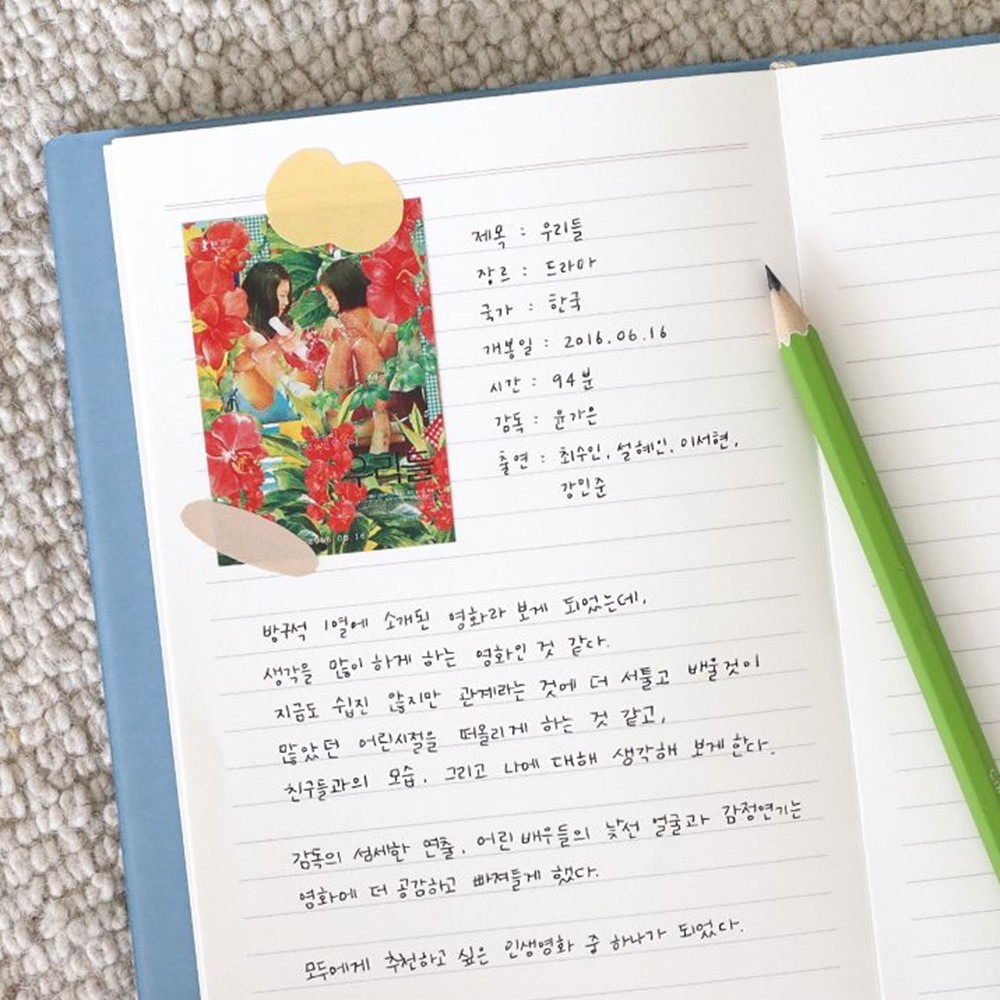 우리들
2016.06.16
제목 : 우리들
장르 : 드라마
국가 : 한국
개봉일 : 2016.06.16
시간 : 94분
감독 : 윤가은
출연 : 최수인, 설혜인, 이서현,
강민준
방구석 1열에 소개된 영화라 보게 되었는데,
생각을 많이 하게 하는 영화인 것 같다.
지금도 쉽진 않지만 관계라는 것에 더 서툴고 배울것이
많았던 어린시절을 떠올리게 하는 것 같고,
친구들과의 모습, 그리고 나에 대해 생각해 보게 한다.
감독의 섬세한 연출, 어린 배우들의 낯선 얼굴과 감정연기는
영화에 더 공감하고 빠져들게 했다.
모두에게 추천하고 싶은 인생영화 중 하나가 되었다.